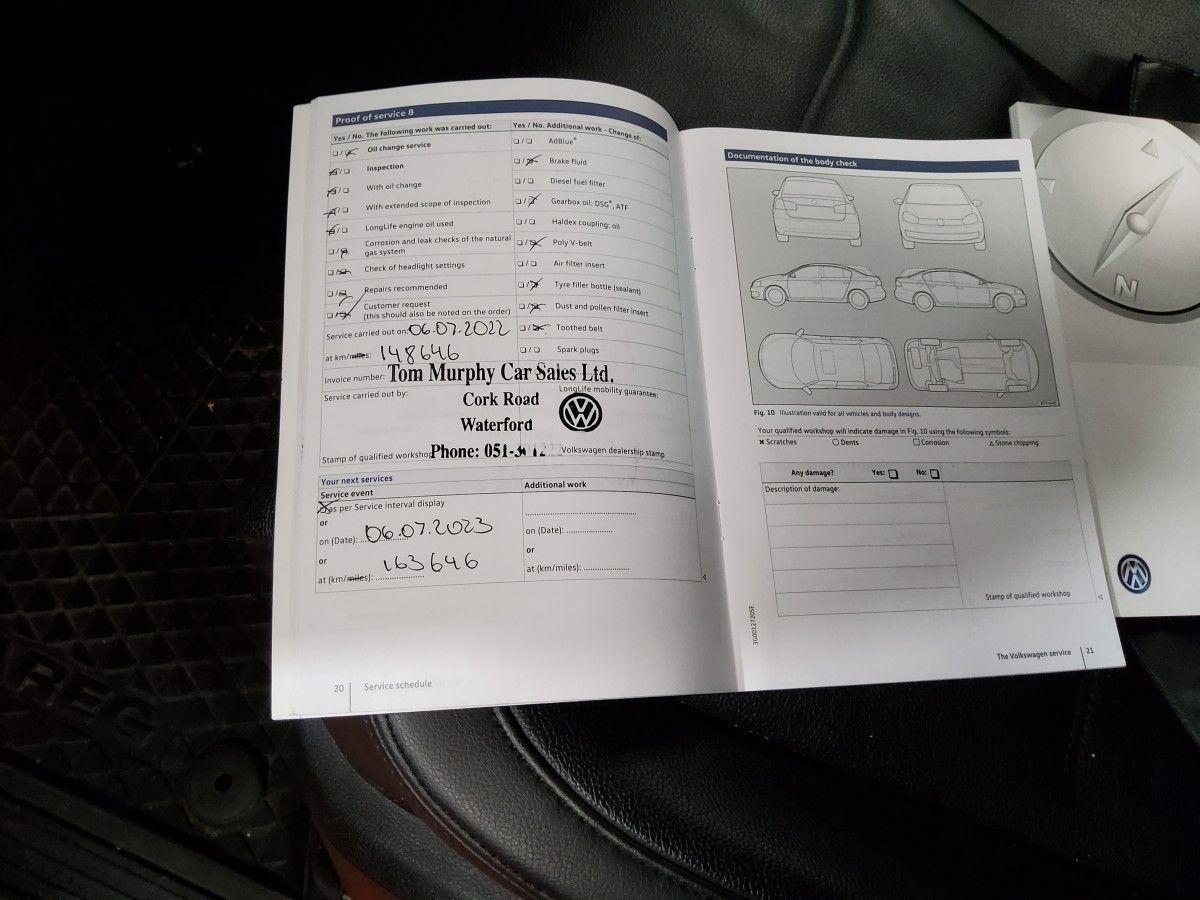 Proof of service 8
Yes / No. The following work was carried out:
Oil change service
Inspection
With oil change
With extended scope of inspection
LongLife engine oil used
Corrosion and leak checks of the natural
gas system
Check of headlight settings
Repairs recommended
Customer request
(this should also be noted on the order)
Service carried out on: 06.07.2022
at km/miles: 148646
Invoice number:
Service carried out by:
Yes / No. Additional work - Change of:
AdBlue®
Brake fluid
Diesel fuel filter
Gearbox oil: DSG®, ATF
Haldex coupling: oil
Poly V-belt
Air filter insert
Tyre filler bottle (sealant)
Dust and pollen filter insert
Toothed belt
Spark plugs
Tom Murphy Car Sales Ltd.
Cork Road
Waterford
Phone: 051-
LongLife mobility guarantee:
Stamp of qualified workshop
Volkswagen dealership stamp
Your next services
Service event
as per Service interval display
or
on (Date): 06.07.2023
or
at (km/miles): 163646
Additional work
on (Date):
or
at (km/miles):
20 Service schedule
Documentation of the body check
Fig. 10 Illustration valid for all vehicles and body designs.
Your qualified workshop will indicate damage in Fig. 10 using the following symbols:
× Scratches ○ Dents □ Corrosion △ Stone chipping
Any damage? Yes: No:
Description of damage:
Stamp of qualified workshop
3G0012720SE
The Volkswagen service 21
N
REG